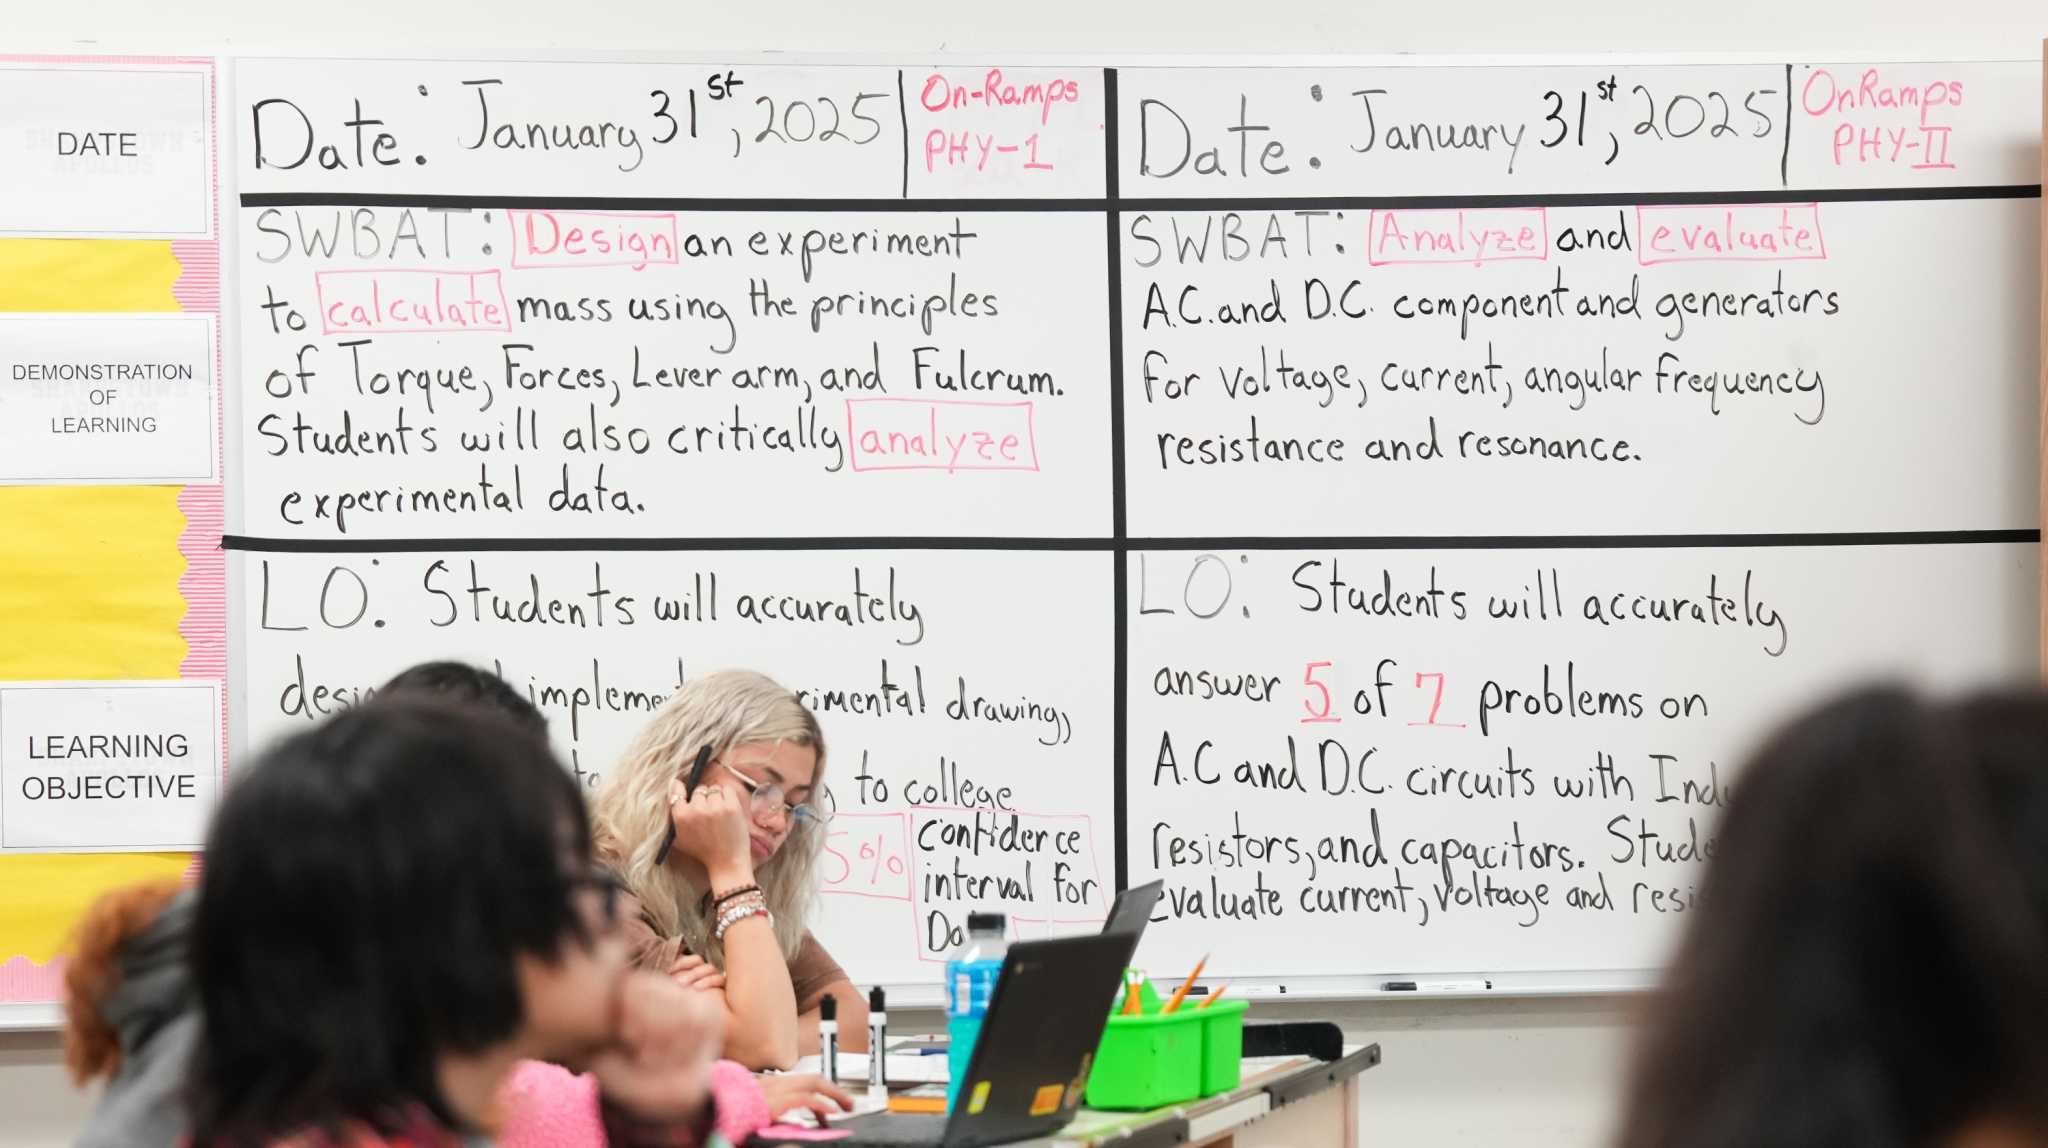 DATE
DEMONSTRATION
OF
LEARNING
LEARNING
OBJECTIVE
Date: January 31st, 2025
On-Ramps
PHY-1
SWBAT: Design an experiment
to calculate mass using the principles
of Torque, Forces, Lever arm, and Fulcrum.
Students will also critically analyze
experimental data.
LO: Students will accurately
drawing,
to college
5%
confidence
interval for
Date: January 31st, 2025
OnRamps
PHY-II
SWBAT: Analyze and evaluate
A.C. and D.C. component and generators
for voltage, current, angular frequency
resistance and resonance.
LO: Students will accurately
answer 5 of 7 problems on
A.C and D.C. circuits with
resistors, and capacitors.
evaluate current, voltage and